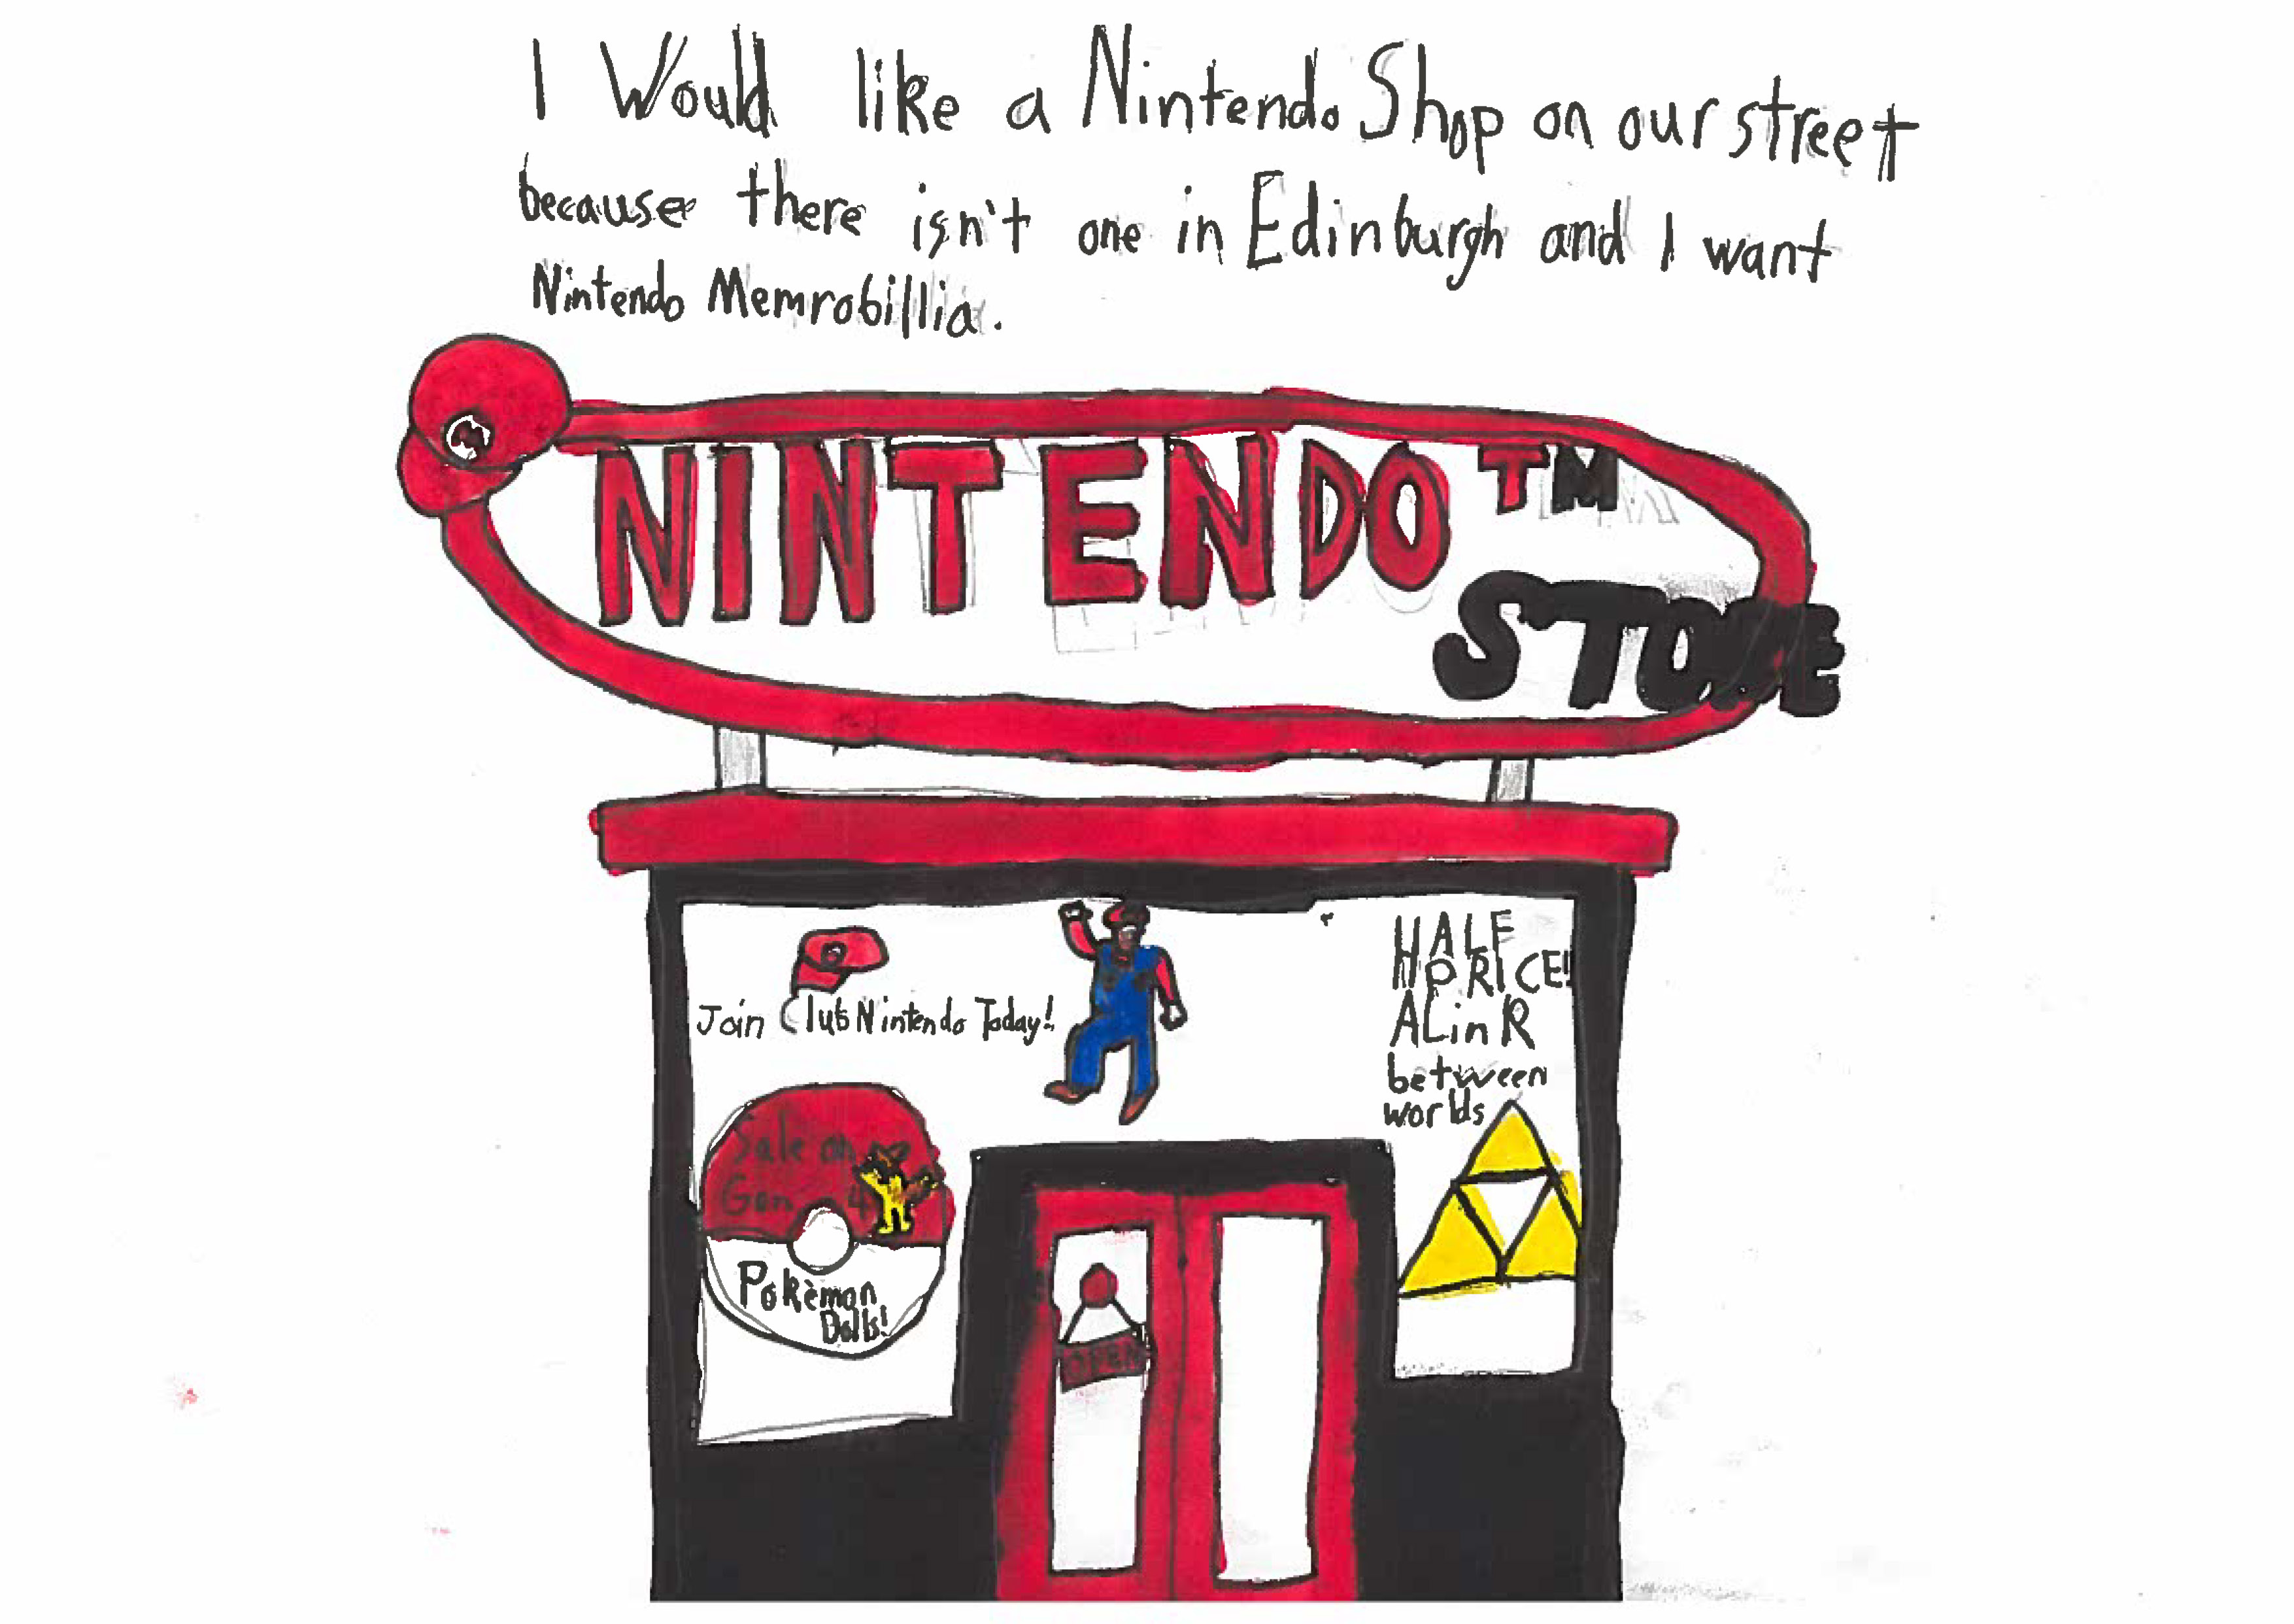 I Would like a Nintendo Shop on our street
because there isn't one in Edinburgh and I want
Nintendo Memrobillia.
M
NINTENDO TM
STORE
Join Club Nintendo Today!
HALF
PRICE!
ALinR
between
worlds
Sale on
Gen 4
Pokèmon
Dolls!
OPEN